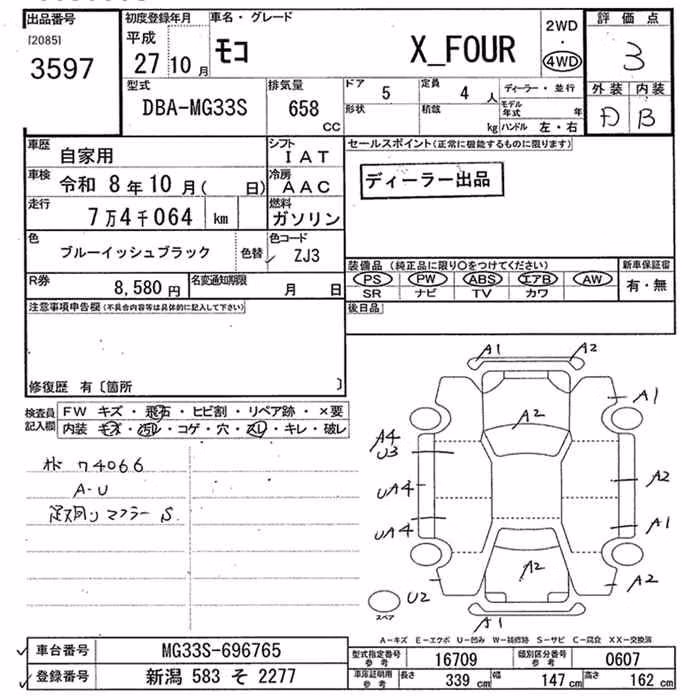 出品番号
[2085]
3597
初度登録年月
平成
27 10 月
車名・グレード
モコ X_FOUR
2WD
・
4WD
評価点
3
外装 内装
D B
型式
DBA-MG33S
排気量
658
CC
ドア 5
定員 4 人
ディーラー・並行
形状
積載 kg
モデル年式 年
ハンドル 左・右
車歴
自家用
シフト
IAT
車検 令和 8年10月( 日)
冷房
AAC
走行
7万4千064 km
燃料
ガソリン
色
ブルーイッシュブラック
色替
色コード
ZJ3
R券
8,580 円
名変通知期限
月 日
セールスポイント(正常に機能するものに限ります)
ディーラー出品
装備品 (純正品に限り〇をつけてください)
新車保証書
PS PW ABS エアB AW
有・無
SR ナビ TV カワ
後日品
注意事項申告欄(不具合内容等は具体的に記入して下さい)
修復歴 有〔箇所 〕
検査員記入欄
FW キズ・飛石・ヒビ割・リペア跡・×要
内装 キズ・汚レ・コゲ・穴・スレ・キレ・破レ
74066
A-U
足廻りマフラー S
A1 A2
A1
A2
A4
U3
A2
UA4
UA4
A1
A2
U2
A2
A1
スペア
A-キズ E-エクボ U-凹み W-補修跡 S-サビ C-腐食 XX-交換済
車台番号 MG33S-696765
登録番号 新潟 583 そ 2277
型式指定番号
参考
16709
類別区分番号
参考
0607
車庫証明用
参考
長さ 339 cm
幅 147 cm
高さ 162 cm